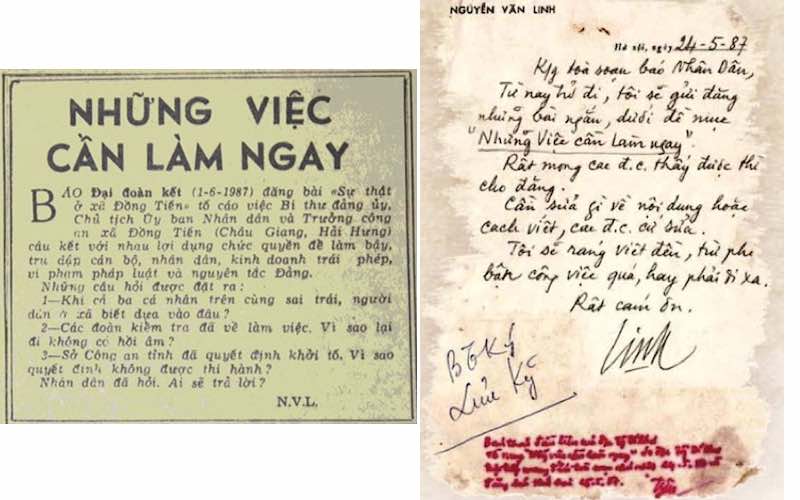 NHỮNG VIỆC
CẦN LÀM NGAY
BÁO Đại đoàn kết (1-6-1987) đăng bài «Sự thật
ở xã Đồng Tiến» tố cáo việc Bí thư đảng ủy,
Chủ tịch Ủy ban Nhân dân và Trưởng công
an xã Đồng Tiến (Châu Giang, Hải Hưng)
câu kết với nhau lợi dụng chức quyền để làm bậy,
trù dập cán bộ, nhân dân, kinh doanh trái phép,
vi phạm pháp luật và nguyên tắc Đảng.
Những câu hỏi được đặt ra :
1—Khi cả ba cá nhân trên cùng sai trái, người
dân ở xã biết dựa vào đâu ?
2—Các đoàn kiểm tra đã về làm việc. Vì sao lại
đi không có hồi âm ?
3—Sở Công an tỉnh đã quyết định khởi tố. Vì sao
quyết định không được thi hành ?
Nhân dân đã hỏi. Ai sẽ trả lời ?
N.V.L.
NGUYỄN VĂN LINH
Hà nội, ngày 24-5-87
K/g toà soạn báo Nhân Dân,
Từ nay trở đi, tôi sẽ gửi đăng
những bài ngắn, dưới đề mục
"Những Việc cần Làm ngay".
Rất mong các đ.c. thấy được thì
cho đăng.
Cần sửa gì về nội dung hoặc
cách viết, các đ.c. cứ sửa.
Tôi sẽ ráng viết đều, trừ phi
bận công việc quá, hay phải đi xa.
Rất cám ơn.
Linh
BTKý
Lưu Kỹ